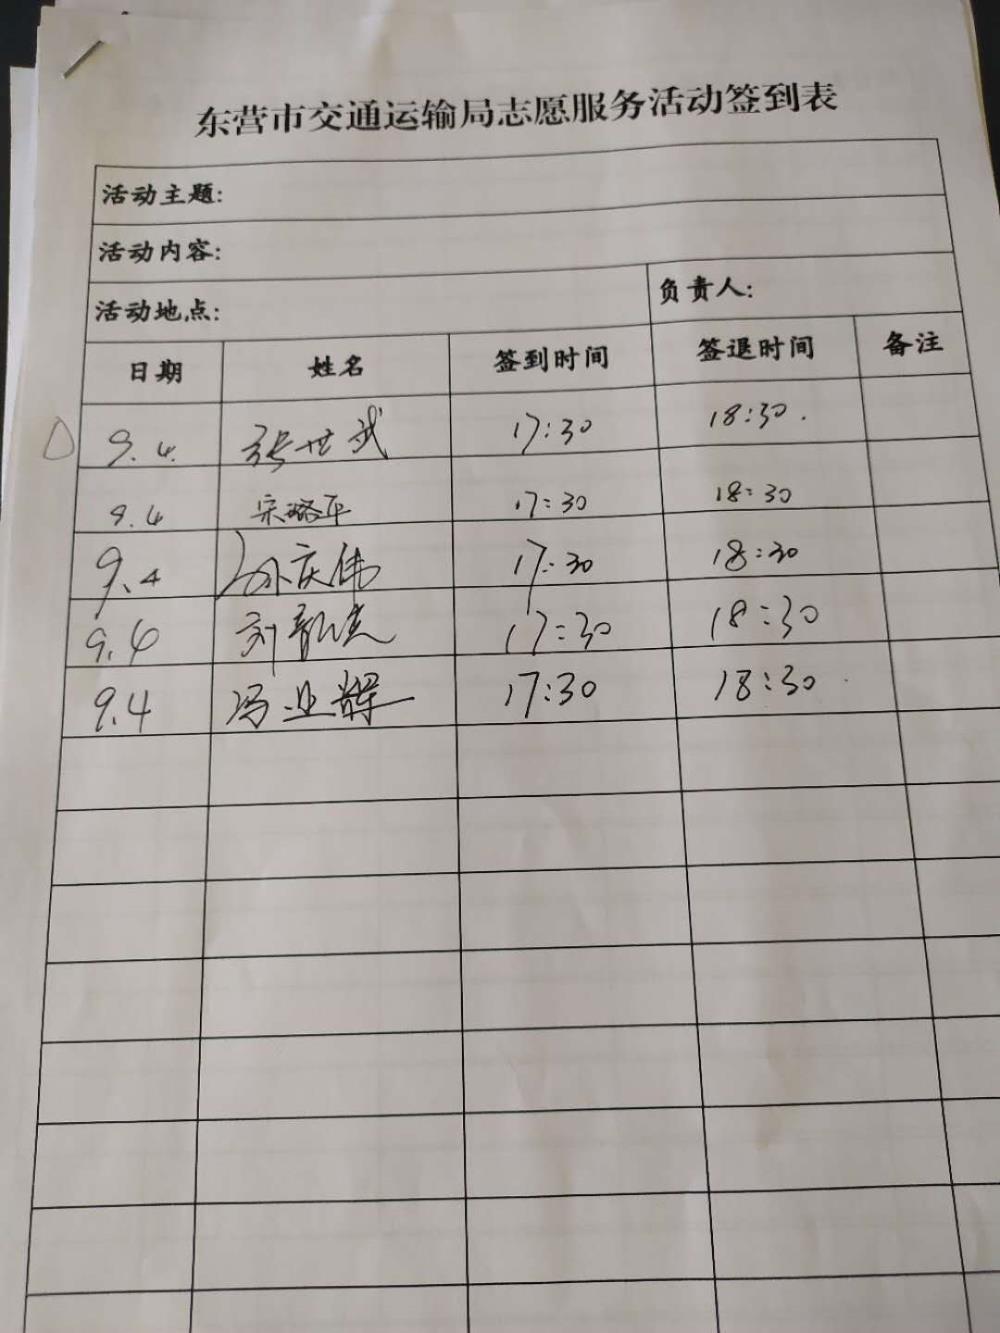 东营市交通运输局志愿服务活动签到表
活动主题:
活动内容:
活动地点: 负责人:
日期 姓名 签到时间 签退时间 备注
9.4. 张世武 17:30 18:30.
9.4 宋璐平 17:30 18:30
9.4 孙庆伟 17:30 18:30
9.4 刘 17:30 18:30
9.4 冯业辉 17:30 18:30